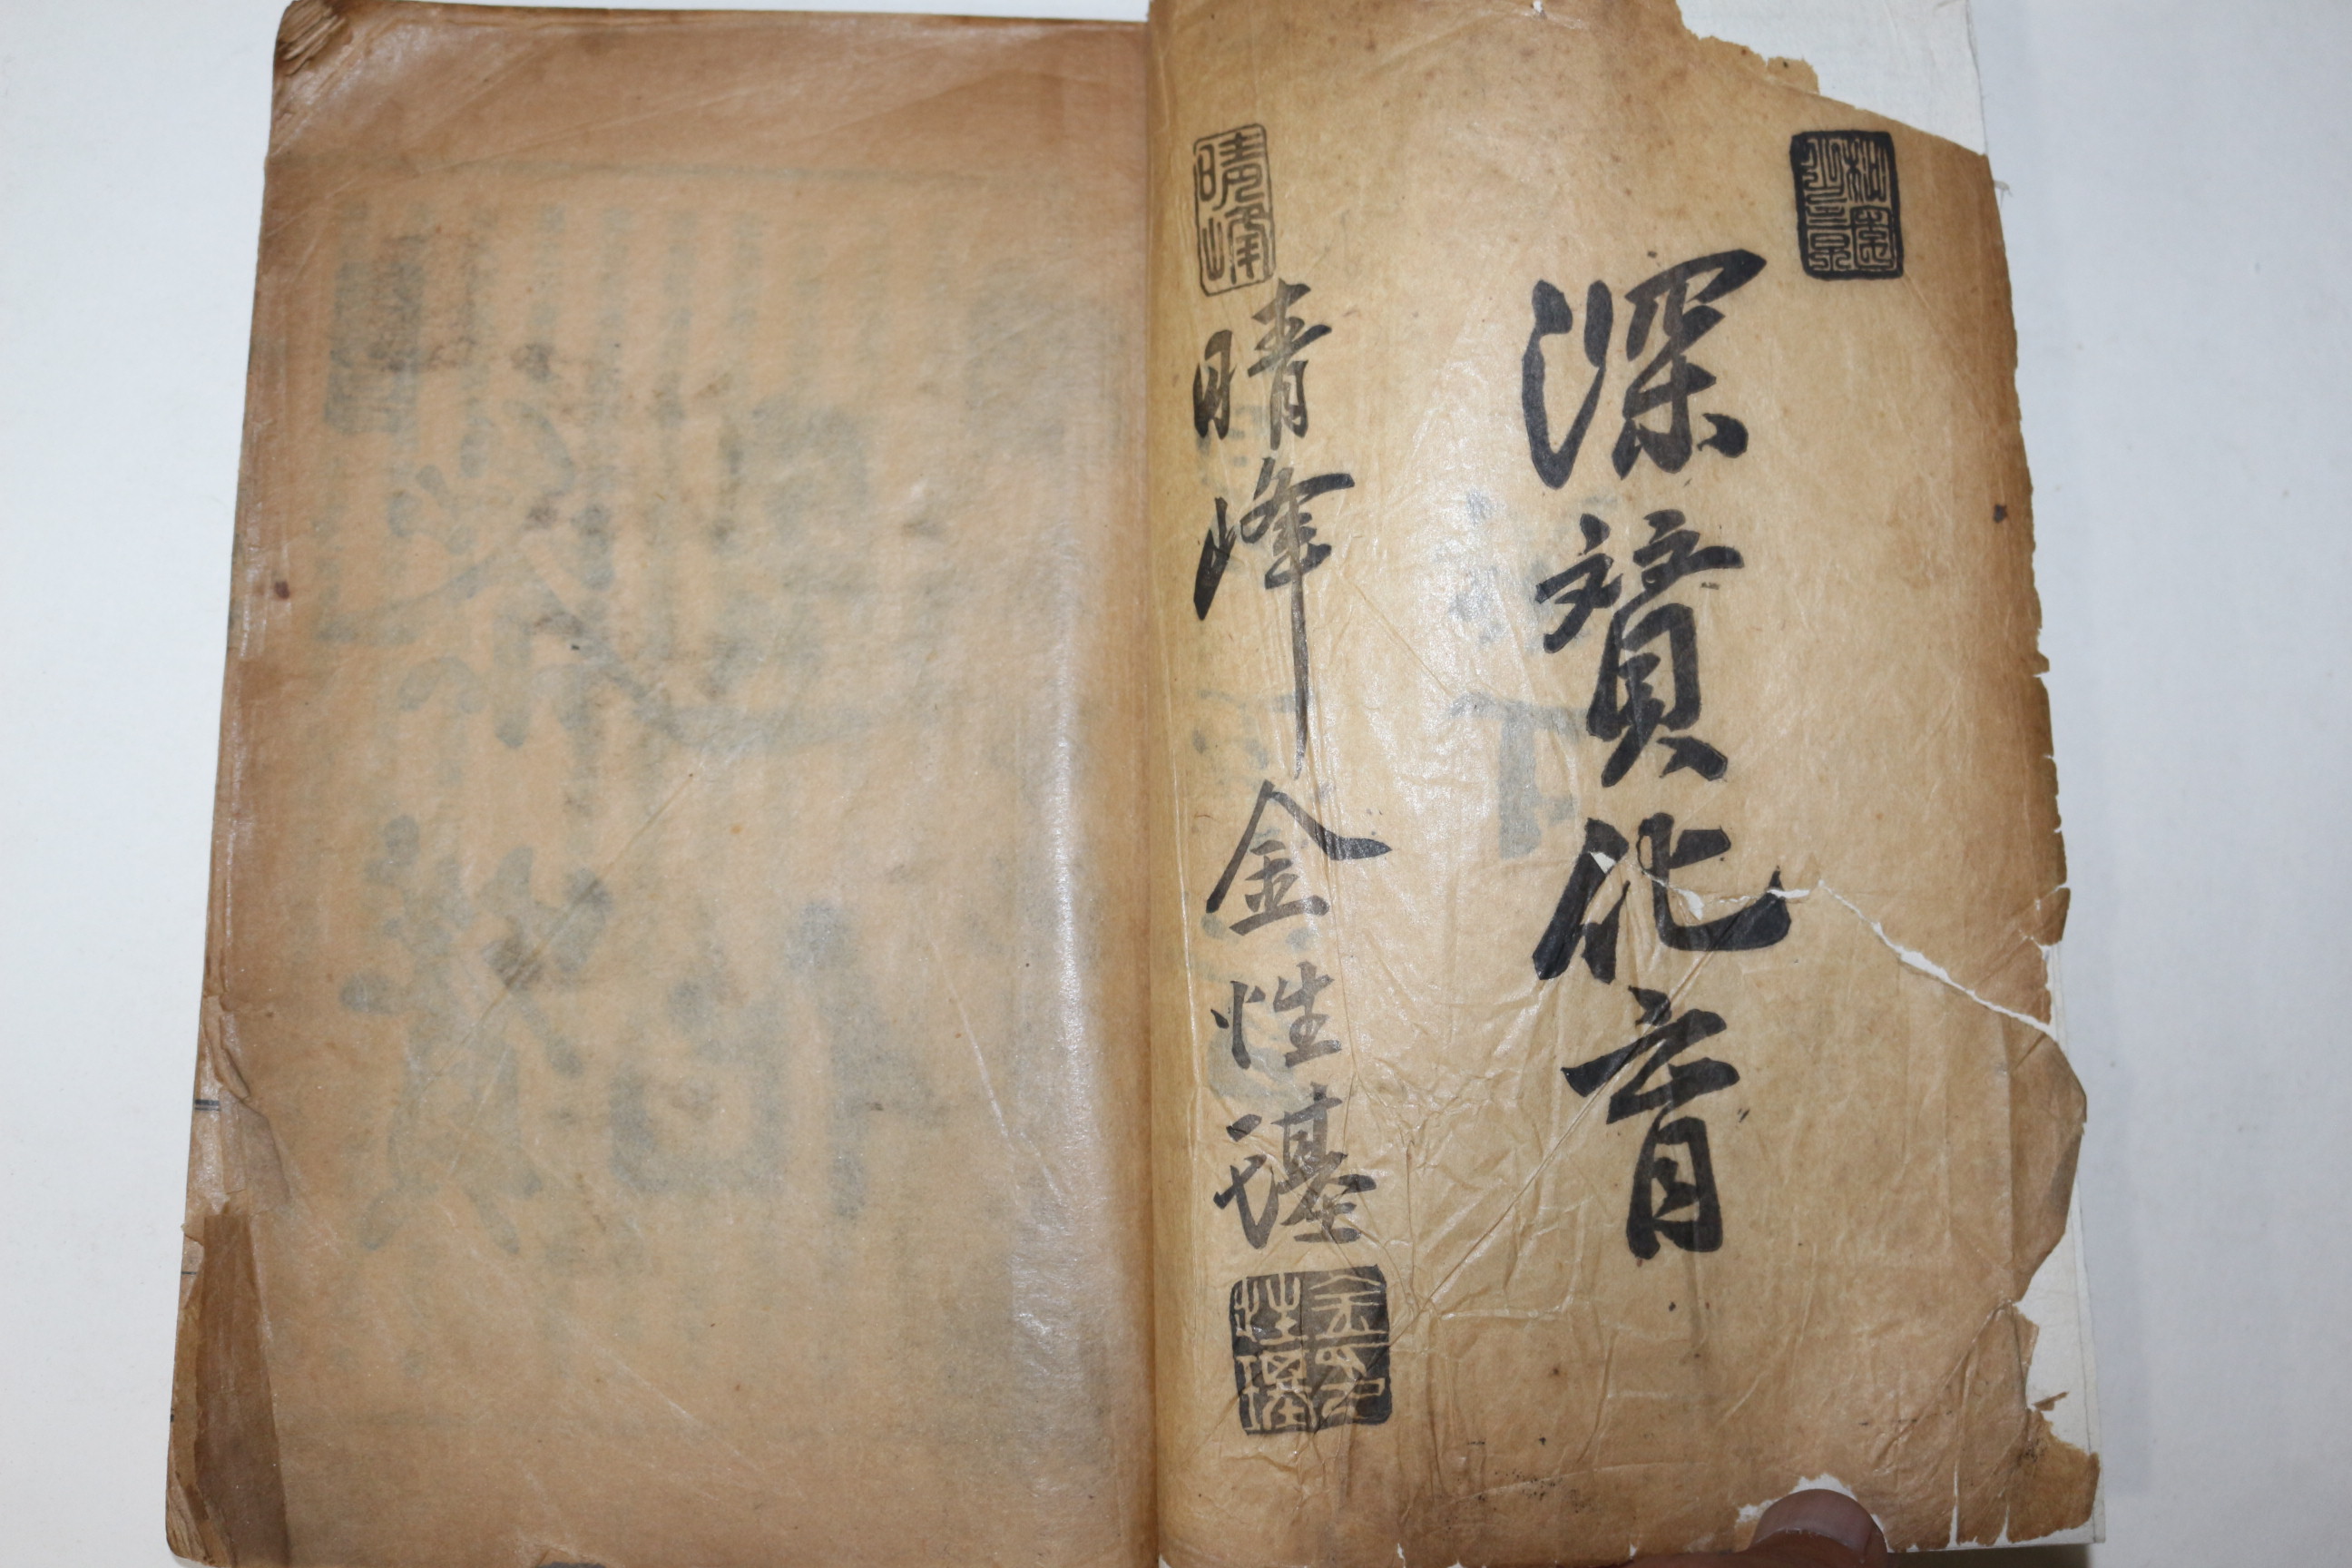 深贊化育
晴峰
晴峰金性璂
金印
性璂